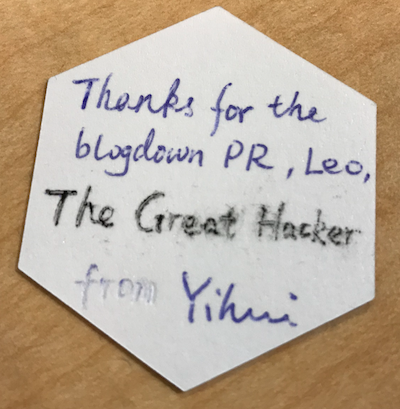 Thanks for the
blogdown PR, Leo,
The Great Hacker
from Yihui